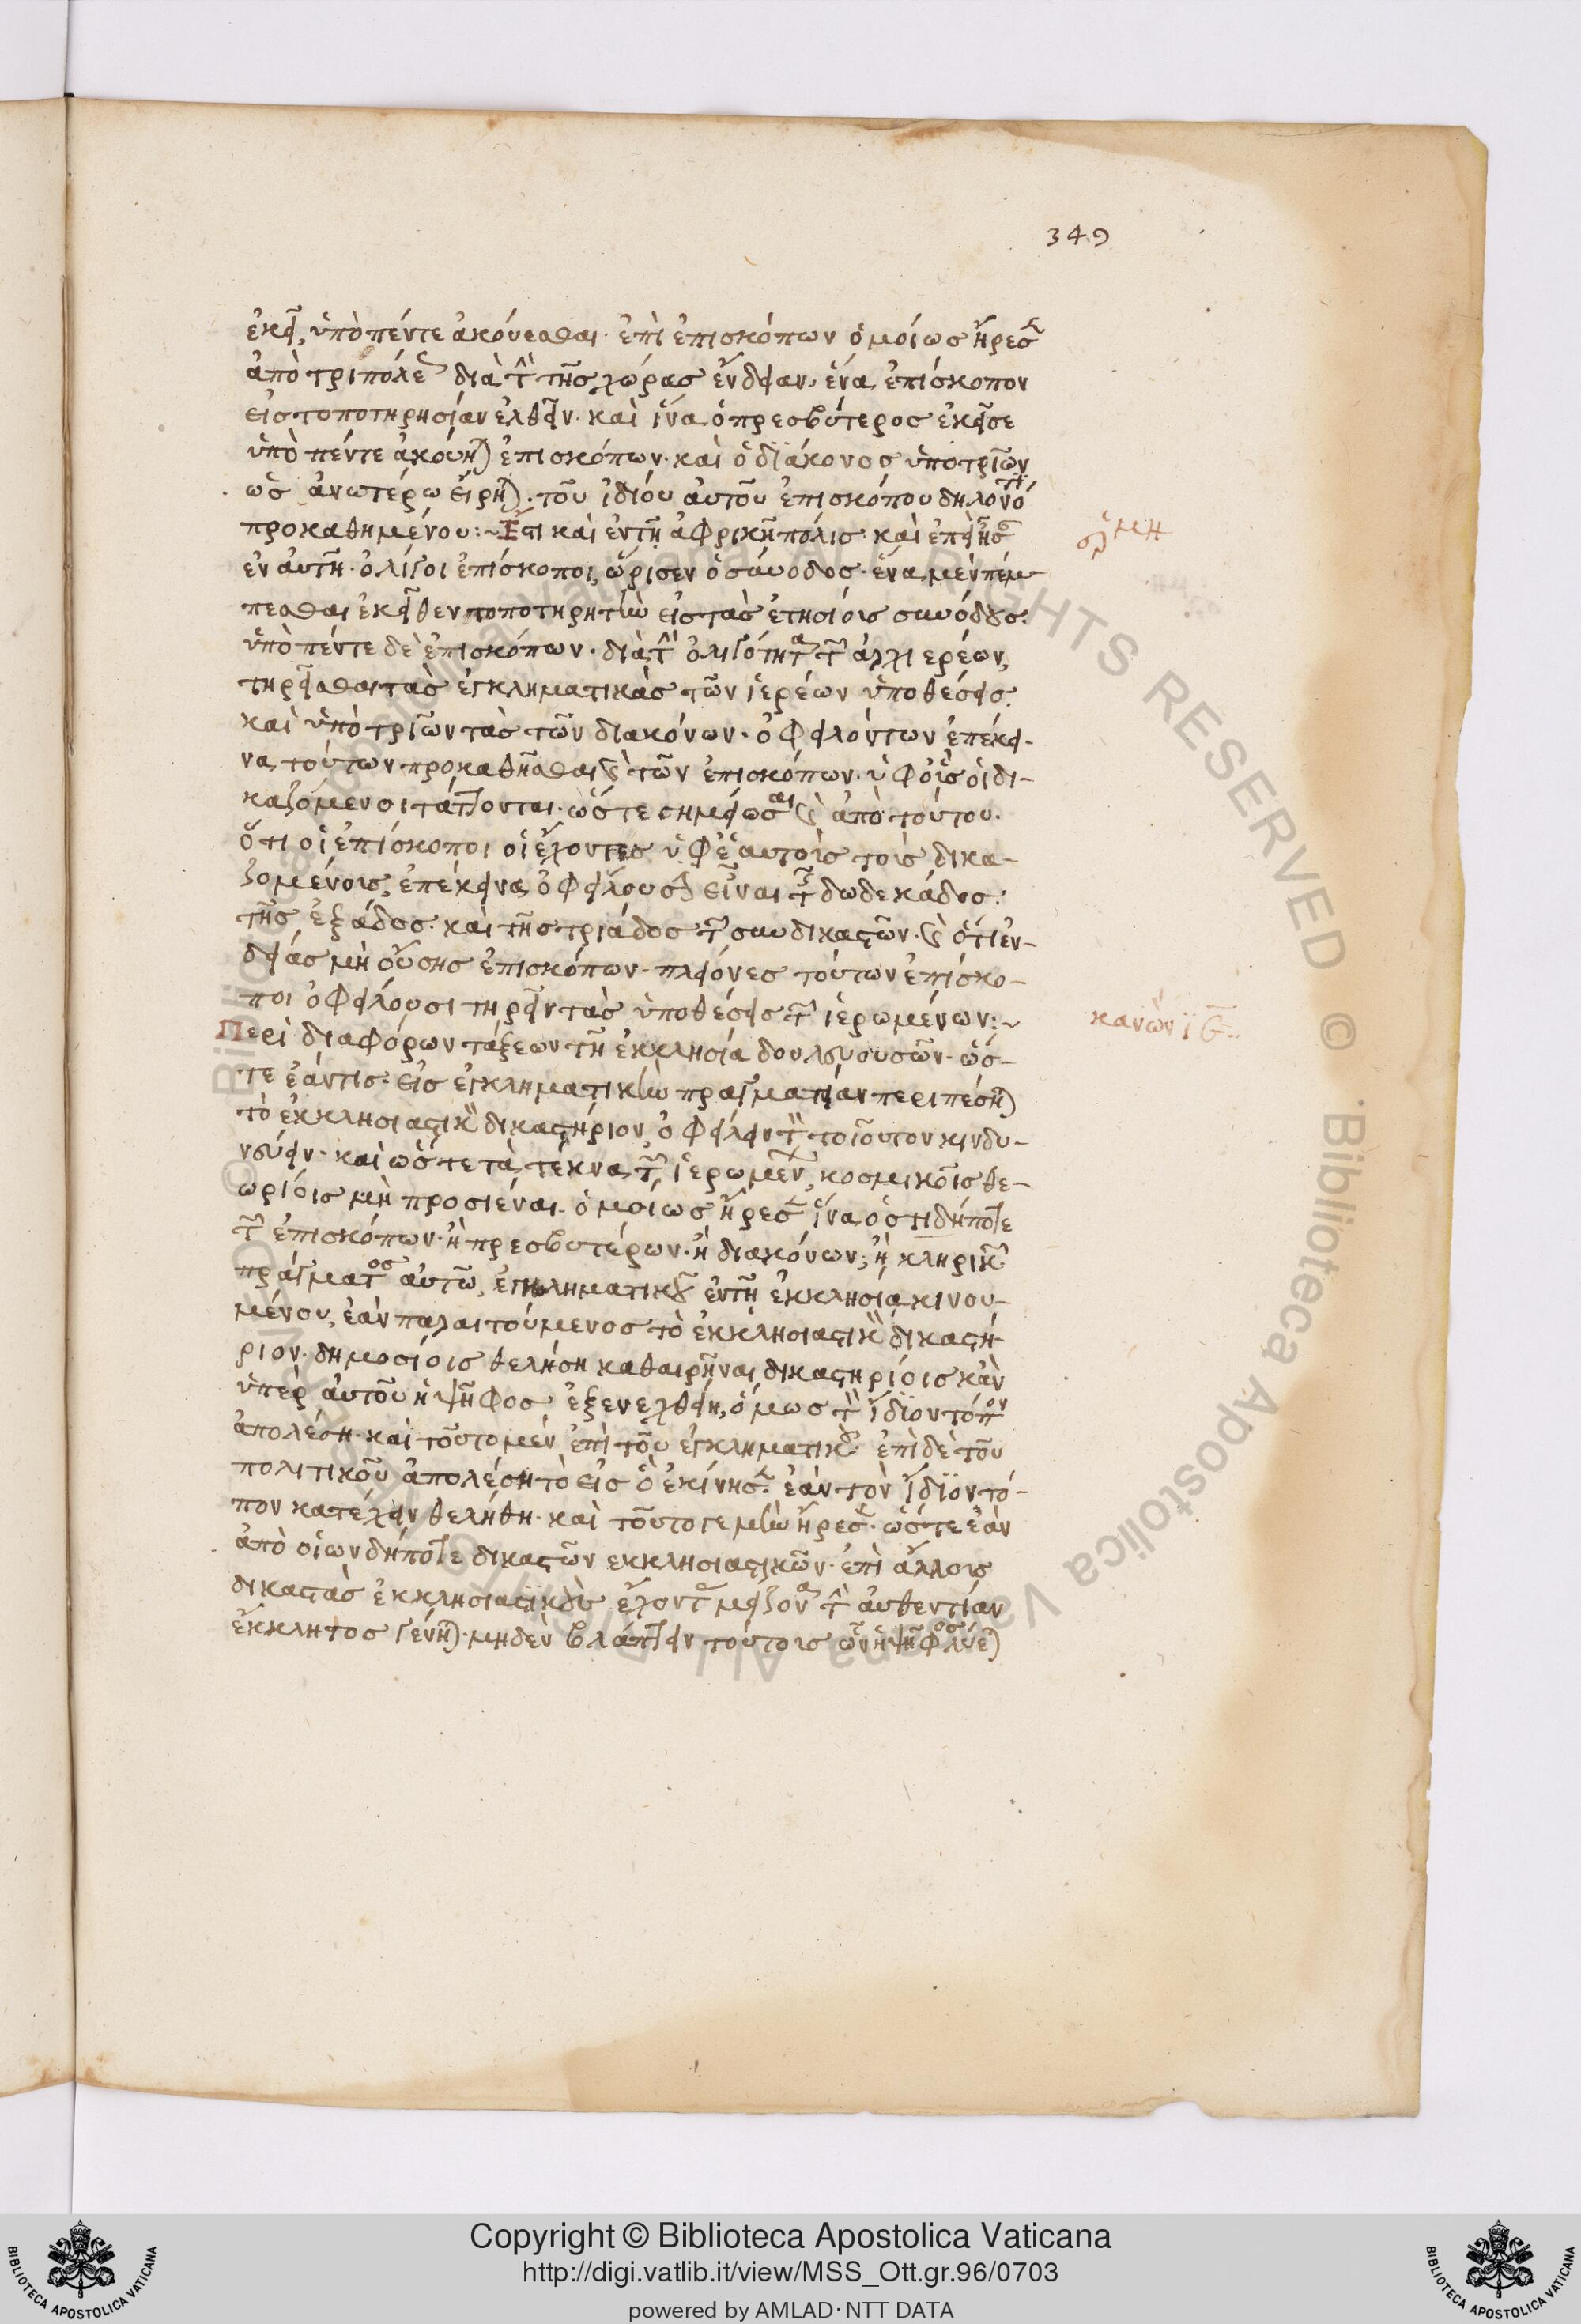 349
ἐκεῖ, ὑπὸ πέντε ἀκούεσθαι ἐπὶ ἐπισκόπων ὁμοίως ἤρεσε
ἀπὸ τριπόλεως διὰ τὴν τῆς χώρας ἔνδειαν, ἕνα ἐπίσκοπον
εἰς τοποτηρησίαν ἐλθεῖν· καὶ ἵνα ὁ πρεσβύτερος ἐκεῖσε
ὑπὸ πέντε ἀκούηται ἐπισκόπων· καὶ ὁ διάκονος ὑπὸ τριῶν
ὡς ἀνωτέρω εἴρηται· τοῦ ἰδίου αὐτοῦ ἐπισκόπου δηλονότι
προκαθημένου:~ Ἔστι καὶ ἐν τῇ ἀφρικῇ πόλις· καὶ ἐπεὶ ἦσαν
σχ μη
ἐν αὐτῇ ὀλίγοι ἐπίσκοποι, ὥρισεν ὁ σύνοδος· ἕνα μὲν πέμ-
πεσθαι ἐκεῖθεν τοποτηρητὴν εἰς τὰς ἐτησίοις συνόδους·
ὑπὸ πέντε δὲ ἐπισκόπων· διὰ τὴν ὀλιγότητα τῶν ἀρχιερέων,
τηρεῖσθαι τὰς ἐγκληματικὰς τῶν ἱερέων ὑποθέσεις·
καὶ ὑπὸ τριῶν τὰς τῶν διακόνων· ὀφειλόντων ἐπέκει-
να τούτων προκαθῆσθαι καὶ τῶν ἐπισκόπων· ὑφ' οἷς οἱ δι-
καζόμενοι τάττονται· ὥστε σημείωσαι καὶ ἀπὸ τούτου·
ὅτι οἱ ἐπίσκοποι οἱ ἔχοντες ὑφ' ἑαυτοῖς τοὺς δικα-
ζομένοις, ἐπέκεινα ὀφείλουσιν εἶναι τῆς δωδεκάδος·
τῆς ἑξάδος· καὶ τῆς τριάδος τῶν συνδικαστῶν· καὶ ὅτι ἐν-
δείας μὴ οὔσης ἐπισκόπων· πλείονες τούτων ἐπίσκο-
ποι ὀφείλουσι τηρεῖν τὰς ὑποθέσεις τῶν ἱερωμένων:~
κανὼν ιε
Περὶ διαφόρων τάξεων τῇ ἐκκλησίᾳ δουλευουσῶν· ὥσ-
τε ἐάν τις εἰς ἐγκληματικὴν πραγματείαν περιπέσηται
τὸ ἐκκλησιαστικὸν δικαστήριον, ὀφείλειν τὸν τοιοῦτον κινδυ-
νεύειν· καὶ ὥστε τὰ τέκνα τῶν ἱερωμένων, κοσμικοῖς θε-
ωρίοις μὴ προσιέναι· ὁμοίως ἤρεσεν ἵνα ὁστιδήποτε
τῶν ἐπισκόπων· ἢ πρεσβυτέρων· ἢ διακόνων, ἢ κληρικῶν
πράγματος αὐτῷ, ἐγκληματικοῦ ἐν τῇ ἐκκλησίᾳ κινου-
μένου, ἐὰν παραιτούμενος τὸ ἐκκλησιαστικὸν δικαστή-
ριον· δημοσίοις θελήσῃ καθαιρῆναι δικαστηρίοις κἂν
ὑπὲρ αὐτοῦ ἡ ψῆφος ἐξενεχθείη, ὅμως τὸν ἴδιον τόπον
ἀπολέσῃ· καὶ τοῦτο μὲν ἐπὶ τοῦ ἐγκληματικοῦ ἐπὶ δὲ τοῦ
πολιτικοῦ ἀπολέσῃ τὸ εἰς ὃ ἐκίνησεν ἐὰν τὸν ἴδιον τό-
πον κατέχειν θελήθῃ· καὶ τοῦτο γε μὴν ἤρεσεν· ὥστε ἐὰν
ἀπὸ οἱωνδήποτε δικαστῶν ἐκκλησιαστικῶν· ἐπὶ ἄλλοις
δικαστὰς ἐκκλησιαστικοὺς ἔχοντας μείζονα τὴν αὐθεντίαν
ἔκκλητος γένηται· μηδὲν βλάπτειν τούτοις ὧν ἡ ψῆφος λύεται